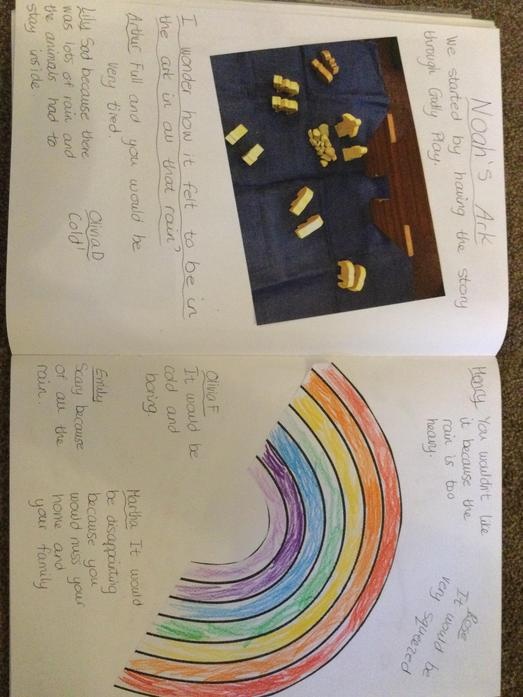 Noah's Ark
We started by having the story
through Godly Play.
I wonder how it felt to be in
the ark in all that rain?
Arthur Full and you would be
very tired.
Lily Sad because there
was lots of rain and
the animals had to
stay inside.
Olivia D
Cold!
Henry You wouldn't like
it because the
rain is too
heavy.
Rose
It
very would be
squeezed
Olivia F
It would be
cold and
boring.
Emily
Scary because
of all the
rain.
Martha It would
be disappointing
because you
would miss your
home and
your family